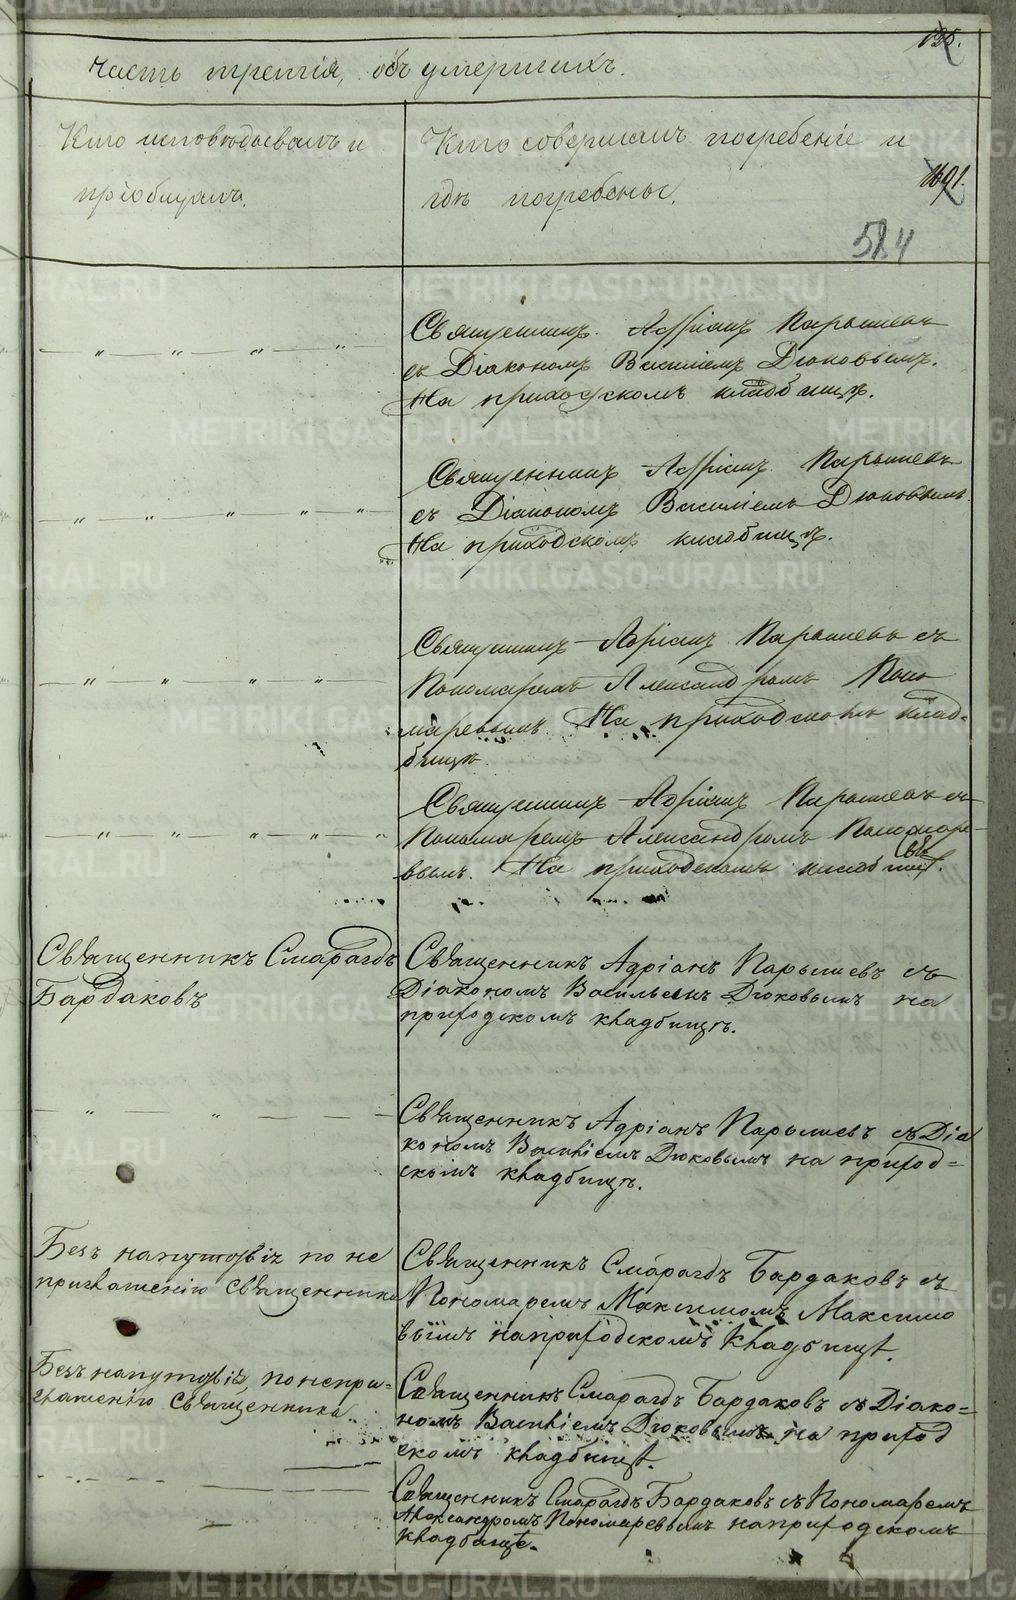 125.
Часть третія, объ умершихъ.
Кто исповѣдывалъ и
пріобщалъ.
Кто совершалъ погребеніе и
гдѣ погребены.
1691.
584
Священникъ Адріанъ Парышевъ
съ Діакономъ Василіемъ Дюковымъ.
На приходскомъ кладбищѣ.
Священникъ Адріанъ Парышевъ
съ Діакономъ Василіемъ Дюковымъ.
На приходскомъ кладбищѣ.
Священникъ Адріанъ Парышевъ съ
Пономаремъ Александромъ Поно
маревымъ. На приходскомъ клад-
бищѣ.
Священникъ Адріанъ Парышевъ съ
Пономаремъ Александромъ Пономаре-
вымъ. На приходскомъ кладбищѣ.
Священникъ Смарагдъ
Бардаковъ
Священникъ Адріанъ Парышевъ съ
Діакономъ Васильемъ Дюковымъ на
приходскомъ кладбищѣ.
Священникъ Адріанъ Парышевъ съ Діа
кономъ Василіемъ Дюковымъ на приход=
скомъ кладбищѣ.
Безъ напутствія по не
приглашенію священника
Священникъ Смарагдъ Бардаковъ съ
Пономаремъ Максимомъ Максимо
вымъ на приходскомъ кладбищѣ.
Безъ напутствія, по непри-
глашенію священника..
Священникъ Смарагдъ Бардаковъ съ Діако=
номъ Василіемъ Дюковымъ на приход
скомъ кладбищѣ.
Священникъ Смарагдъ Бардаковъ съ Пономаремъ
Александромъ Пономаревымъ на приходскомъ
кладбищѣ.
METRIKI.GASO-URAL.RU